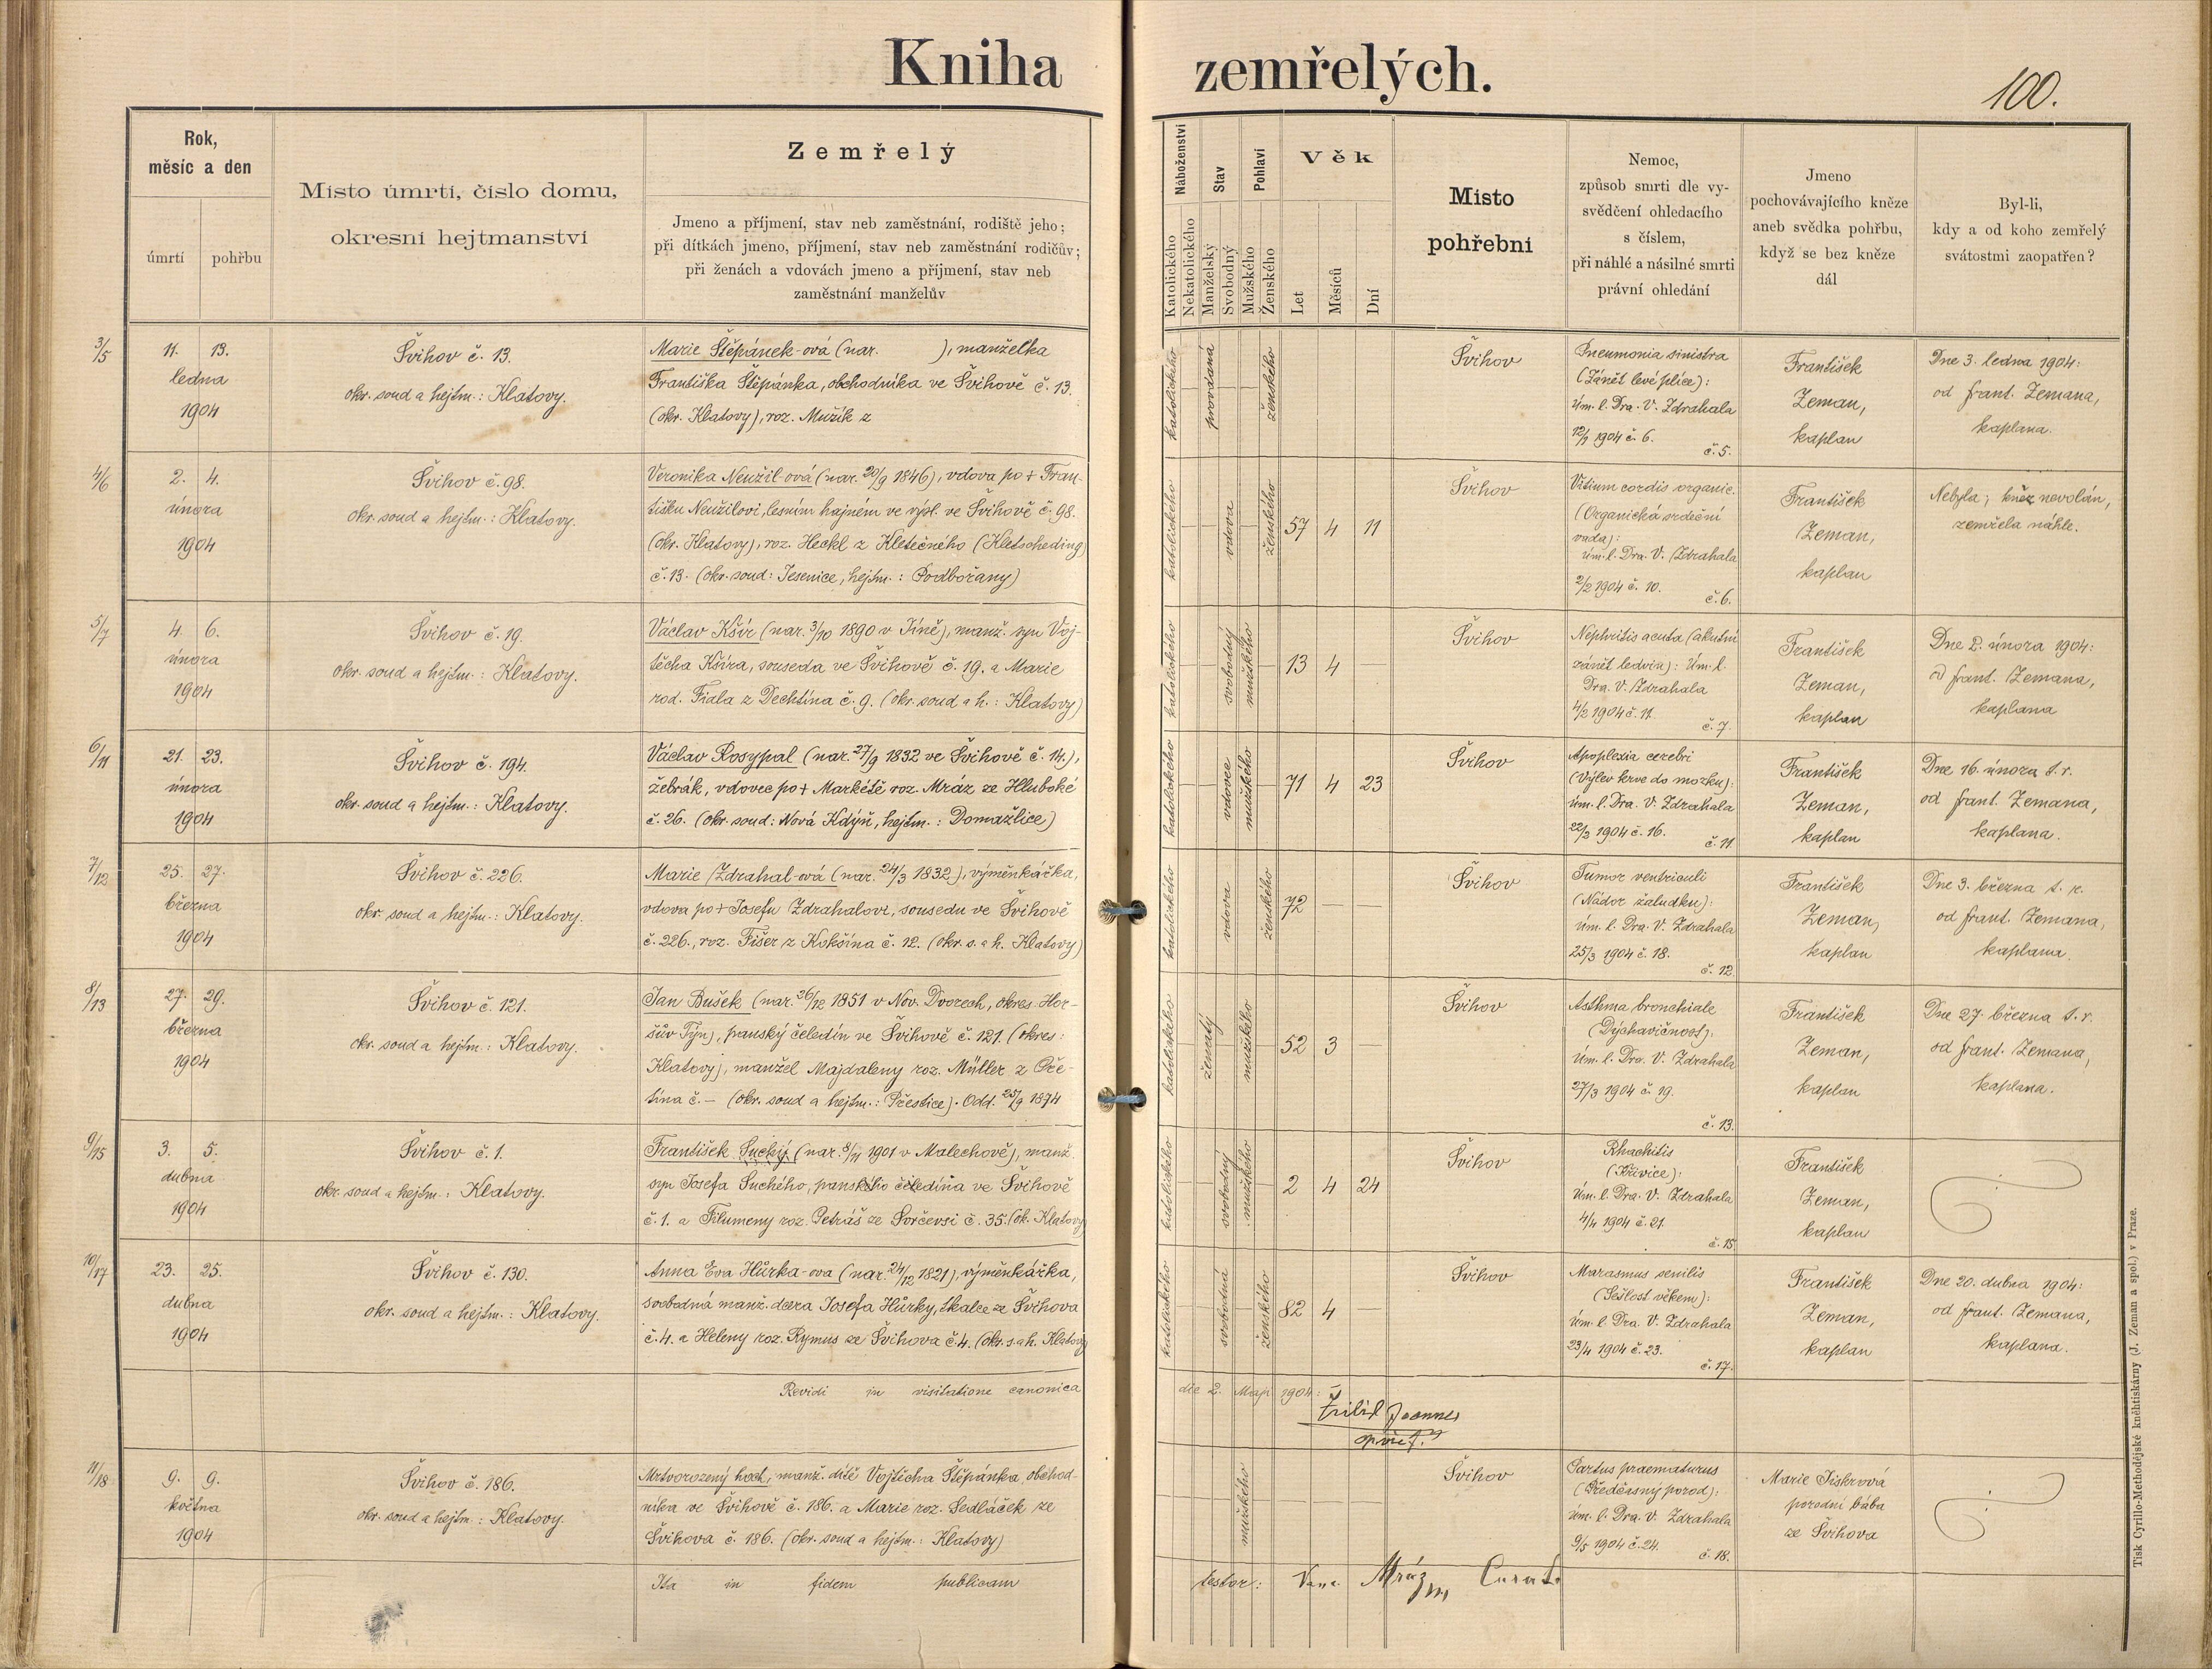 Kniha zemřelých.
100.
Rok,
měsíc a den
úmrtí
pohřbu
Místo úmrtí, číslo domu,
okresní hejtmanství
Zemřelý
Jmeno a příjmení, stav neb zaměstnání, rodiště jeho;
při dítkách jmeno, příjmení, stav neb zaměstnání rodičův;
při ženách a vdovách jmeno a příjmení, stav neb
zaměstnání manželův
Náboženství
Katolického
Nekatolického
Stav
Manželský
Svobodný
Pohlaví
Mužského
Ženského
Věk
Let
Měsíců
Dní
Místo
pohřební
Nemoc,
způsob smrti dle vy-
svědčení ohledacího
s číslem,
při náhlé a násilné smrti
právní ohledání
Jmeno
pochovávajícího kněze
aneb svědka pohřbu,
když se bez kněze
dál
Byl-li,
kdy a od koho zemřelý
svátostmi zaopatřen?
3/5
11. 13.
ledna
1904
Švihov č. 13.
okr. soud a hejtm.: Klatovy.
Marie Štěpánek-ová (nar. ), manželka
Františka Štěpánka, obchodníka ve Švihově č. 13.
(okr. Klatovy), roz. Mužík z
katolického
provdaná
ženského
Švihov
Pneumonia sinistra
(Zánět levé plíce):
úm. l. Dra. V. Zdrahala
12/1 1904 č. 6.
č. 5.
František
Zeman,
kaplan
Dne 3. ledna 1904:
od frant. Zemana,
kaplana.
4/6
2. 4.
února
1904
Švihov č. 98.
okr. soud a hejtm.: Klatovy.
Veronika Neužil-ová (nar. 20/9 1846), vdova po + Fran-
tišku Neužilovi, lesním hajném ve výsl. ve Švihově č. 98.
(okr. Klatovy), roz. Heckl z Kletečného (Kletscheding)
č. 13. (okr. soud: Jesenice, hejtm.: Podbořany)
katolického
vdova
ženského
57 4 11
Švihov
Vitium cordis organic.
(Organická srdeční
vada):
úm. l. Dra. V. Zdrahala
2/2 1904 č. 10.
č. 6.
František
Zeman,
kaplan
Nebyla; kněz nevolán,
zemřela náhle.
5/7
4. 6.
února
1904
Švihov č. 19.
okr. soud a hejtm.: Klatovy.
Václav Kšír (nar. 3/10 1890 v Jíně), manž. syn Voj-
těcha Kšíra, souseda ve Švihově č. 19. a Marie
rod. Fiala z Dechtína č. 9. (okr. soud a h.: Klatovy)
katolického
svobodný
mužského
13 4
Švihov
Nephritis acuta (akutní
zánět ledvin): Úm. l.
Dra. V. Zdrahala
4/2 1904 č. 11.
č. 7.
František
Zeman,
kaplan
Dne 2. února 1904:
od frant. Zemana,
kaplana
6/11
21. 23.
února
1904
Švihov č. 194.
okr. soud a hejtm.: Klatovy.
Václav Rosypal (nar. 27/9 1832 ve Švihově č. 14.),
žebrák, vdovec po + Markétě roz. Mráz ze Hluboké
č. 26. (okr. soud: Nová Kdýň, hejtm.: Domažlice)
katolického
vdovec
mužského
71 4 23
Švihov
Apoplexia cerebri
(Výlev krve do mozku):
úm. l. Dra. V. Zdrahala
22/2 1904 č. 16.
č. 11.
František
Zeman,
kaplan
Dne 16. února t. r.
od frant. Zemana,
kaplana.
7/12
25. 27.
března
1904
Švihov č. 226.
okr. soud a hejtm.: Klatovy.
Marie Zdrahal-ová (nar. 24/3 1832), výměnkářka,
vdova po + Josefu Zdrahalovi, sousedu ve Švihově
č. 226., roz. Fišer z Kokšína č. 12. (okr. s. a h. Klatovy)
katolického
vdova
ženského
72 — —
Švihov
Tumor ventriculi
(Nádor žaludku):
úm. l. Dra. V. Zdrahala
25/3 1904 č. 18.
č. 12.
František
Zeman,
kaplan
Dne 3. března t. r.
od frant. Zemana,
kaplana.
8/13
27. 29.
března
1904
Švihov č. 121.
okr. soud a hejtm.: Klatovy.
Jan Bušek (nar. 26/12 1851 v Nov. Dvorech, okres Hor-
šův Týn), panský čeledín ve Švihově č. 121. (okres:
Klatovy), manžel Majdaleny roz. Müller z Pře-
tína č. — (okr. soud a hejtm.: Přestice). Odd. 25/9 1874
katolického
ženatý
mužského
52 3 —
Švihov
Asthma bronchiale
(Dýchavičnost):
úm. l. Dra. V. Zdrahala
27/3 1904 č. 19.
č. 13.
František
Zeman,
kaplan
Dne 27. března t. r.
od frant. Zemana,
kaplana.
9/15
3. 5.
dubna
1904
Švihov č. 1.
okr. soud a hejtm.: Klatovy.
František Suchý (nar. 8/11 1901 v Malechově), manž.
syn Josefa Suchého, panského čeledína ve Švihově
č. 1. a Filumeny roz. Petráš ze Svrčevsi č. 35. (ok. Klatovy)
katolického
svobodný
mužského
2 4 24
Švihov
Rhachitis
(Křivice):
úm. l. Dra. V. Zdrahala
4/4 1904 č. 21.
č. 15.
František
Zeman,
kaplan
10/17
23. 25.
dubna
1904
Švihov č. 130.
okr. soud a hejtm.: Klatovy.
Anna Eva Hůrka-ova (nar. 24/12 1821), výměnkářka,
svobodná manž. dcera Josefa Hůrky, tkalce ze Švihova
č. 4. a Heleny roz. Rymus ze Švihova č. 4. (okr. s. a h. Klatovy)
katolického
svobodná
ženského
82 4 —
Švihov
Marasmus senilis
(Sešlost věkem):
úm. l. Dra. V. Zdrahala
23/4 1904 č. 23.
č. 17.
František
Zeman,
kaplan
Dne 20. dubna 1904:
od frant. Zemana,
kaplana.
Revidi in visitatione canonica die 2. Maji 1904:
Joannes
11/18
9. 9.
května
1904
Švihov č. 186.
okr. soud a hejtm.: Klatovy.
Mrtvorozený hoch, manž. dítě Vojtěcha Štěpánka obchod-
níka ve Švihově č. 186. a Marie roz. Sedláček ze
Švihova č. 186. (okr. soud a hejtm.: Klatovy)
mužského
Švihov
Partus praematurus
(Předčasný porod):
úm. l. Dra. V. Zdrahala
9/5 1904 č. 24.
č. 18.
Marie Jiskrová
porodní bába
ze Švihova
Ita in fidem publicam testor: Mráz
Tisk Cyrillo-Methodějské kněhtiskárny (J. Zeman a spol.) v Praze.